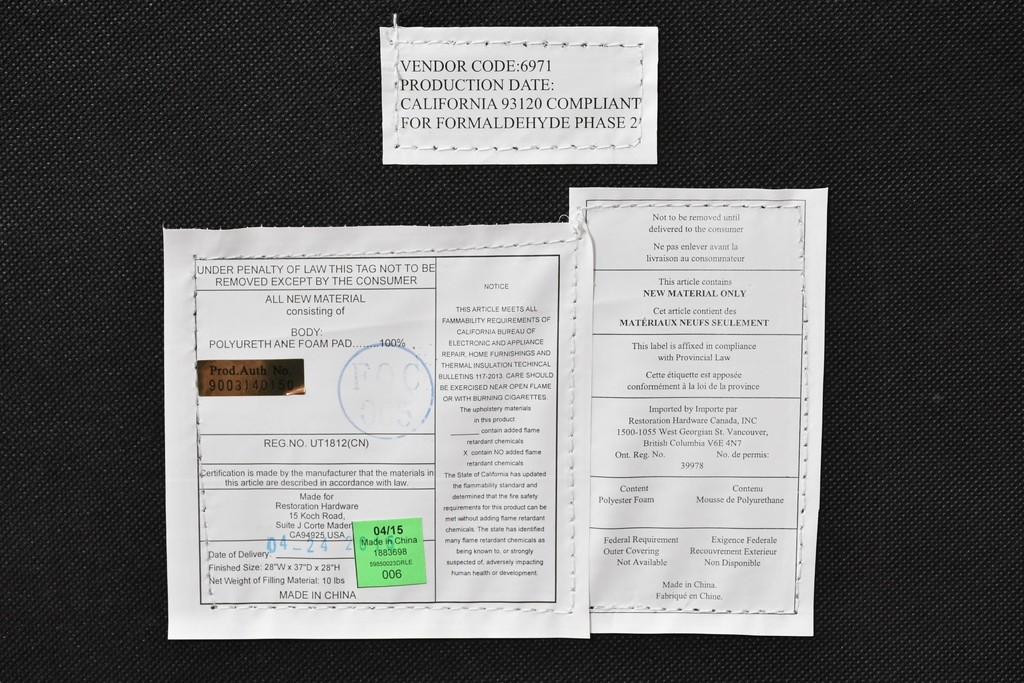 VENDOR CODE:6971
PRODUCTION DATE:
CALIFORNIA 93120 COMPLIANT
FOR FORMALDEHYDE PHASE 2
UNDER PENALTY OF LAW THIS TAG NOT TO BE
REMOVED EXCEPT BY THE CONSUMER
ALL NEW MATERIAL
consisting of
BODY:
POLYURETH ANE FOAM PAD........100%
Prod.Auth No.
9003140150
FOC
005
REG.NO. UT1812(CN)
Certification is made by the manufacturer that the materials in
this article are described in accordance with law.
Made for
Restoration Hardware
15 Koch Road,
Suite J Corte Mader
CA94925 USA
04-24 2
Date of Delivery:
Finished Size: 28"W x 37"D x 28"H
Net Weight of Filling Material: 10 lbs
MADE IN CHINA
04/15
Made in China
1883698
59850023DRLE
006
NOTICE
THIS ARTICLE MEETS ALL
FAMMABILITY REQUIREMENTS OF
CALIFORNIA BUREAU OF
ELECTRONIC AND APPLIANCE
REPAIR, HOME FURNISHINGS AND
THERMAL INSULATION TECHINCAL
BULLETINS 117-2013. CARE SHOULD
BE EXERCISED NEAR OPEN FLAME
OR WITH BURNING CIGARETTES.
The upholstery materials
in this product
______ contain added flame
retardant chemicals
X contain NO added flame
retardant chemicals
The State of California has updated
the flammability standard and
determined that the fire safety
requirements for this product can be
met without adding flame retardant
chemicals. The state has identified
many flame retardant chemicals as
being known to, or strongly
suspected of, adversely impacting
human health or development.
Not to be removed until
delivered to the consumer
Ne pas enlever avant la
livraison au consommateur
This article contains
NEW MATERIAL ONLY
Cet article contient des
MATÉRIAUX NEUFS SEULEMENT
This label is affixed in compliance
with Provincial Law
Cette étiquette est apposée
conformément à la loi de la province
Imported by Importe par
Restoration Hardware Canada, INC
1500-1055 West Georgian St. Vancouver,
British Columbia V6E 4N7
Ont. Reg. No. No. de permis:
39978
Content Contenu
Polyester Foam Mousse de Polyurethane
Federal Requirement Exigence Federale
Outer Covering Recouvrement Exterieur
Not Available Non Disponible
Made in China.
Fabriqué en Chine.